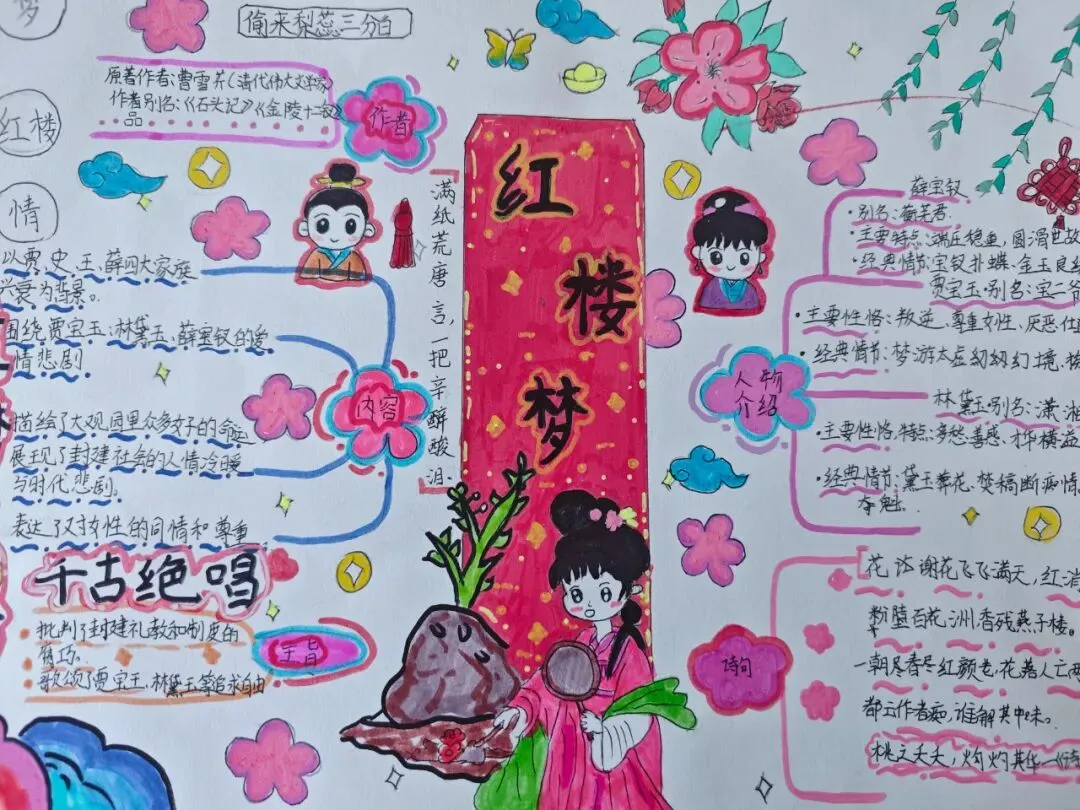 梦
偷来梨蕊三分白
原著作者:曹雪芹(清代伟大文学家)
作者别名:《石头记》《金陵十二钗》
品
作者
红楼
情
以贾、史、王、薛四大家族
兴衰为背景。
围绕贾宝玉;林黛玉、薛宝钗的爱
情悲剧
描绘了大观园里众多女子的命运
展现了封建社会的人情冷暖
与时代悲剧.
表达了对女性的同情和尊重
内容
千古绝唱
批判了封建礼教和制度的
歌颂了贾宝玉,林黛玉等追求自由
主旨
满纸荒唐言,一把辛酸泪.
红楼梦
人物
介绍
薛宝钗
·别名:蘅芜君.
·主要特点:端庄稳重,圆滑世故
·经典情节:宝钗扑蝶、金玉良缘
贾宝玉·别名:宝二爷
·主要性格:叛逆、尊重女性、厌恶仕
·经典情节:梦游太虚幻境、
林黛玉·别名:潇湘
·主要性格.特点:多愁善感、才华横溢
·经典情节:黛玉葬花.焚稿断痴情
夺魁.
诗句
花谢花飞飞满天,红消
粉堕百花洲,香残燕子楼。
一朝尽香尽红颜老,花落人亡两
都云作者痴,谁解其中味。
桃之夭夭,灼灼其华